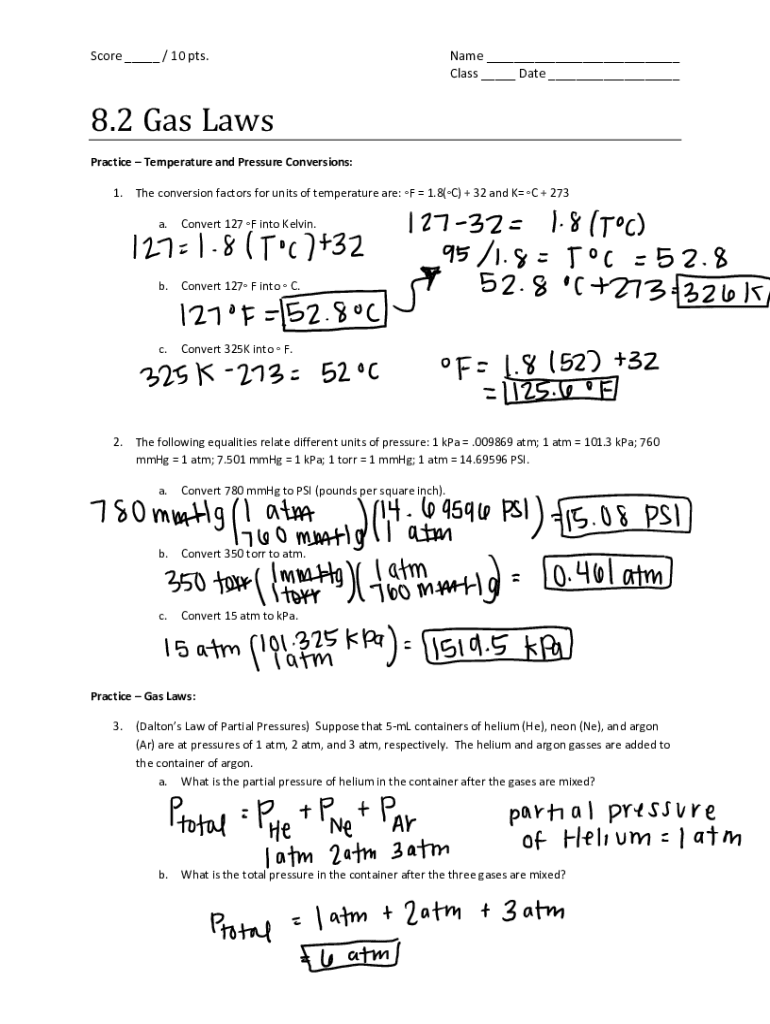 Score _____ / 10 pts.
Name ____________________________
Class _____ Date ___________________
8.2 Gas Laws
Practice – Temperature and Pressure Conversions:
1. The conversion factors for units of temperature are: ◦F = 1.8(◦C) + 32 and K= ◦C + 273
a. Convert 127 ◦F into Kelvin.
127 = 1.8 (T°C) +32
127-32 = 1.8 (T°C)
95 /1.8 = T°C = 52.8
52.8 °C +273 = 326 K
b. Convert 127◦ F into ◦ C.
127°F = 52.8°C
c. Convert 325K into ◦ F.
325 K -273 = 52 °C
°F = 1.8 (52) +32
= 125.6 °F
2. The following equalities relate different units of pressure: 1 kPa = .009869 atm; 1 atm = 101.3 kPa; 760
mmHg = 1 atm; 7.501 mmHg = 1 kPa; 1 torr = 1 mmHg; 1 atm = 14.69596 PSI.
a. Convert 780 mmHg to PSI (pounds per square inch).
780 mmHg (1 atm / 760 mmHg) (14.69596 PSI / 1 atm) = 15.08 PSI
b. Convert 350 torr to atm.
350 torr (1 mmHg / 1 torr) (1 atm / 760 mmHg) = 0.461 atm
c. Convert 15 atm to kPa.
15 atm (101.325 kPa / 1 atm) = 1519.5 kPa
Practice – Gas Laws:
3. (Dalton's Law of Partial Pressures) Suppose that 5-mL containers of helium (He), neon (Ne), and argon
(Ar) are at pressures of 1 atm, 2 atm, and 3 atm, respectively. The helium and argon gasses are added to
the container of argon.
a. What is the partial pressure of helium in the container after the gases are mixed?
Ptotal = PHe + PNe + PAr
1 atm 2 atm 3 atm
partial pressure
of Helium = 1 atm
b. What is the total pressure in the container after the three gases are mixed?
Ptotal = 1 atm + 2 atm + 3 atm
= 6 atm